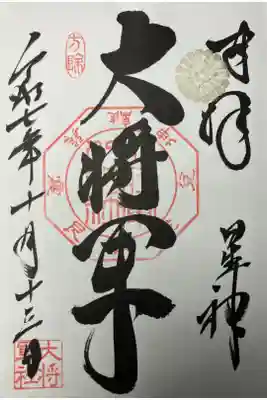 奉拝
星神
大将軍
令和七年十月十三日
方除
大将軍社